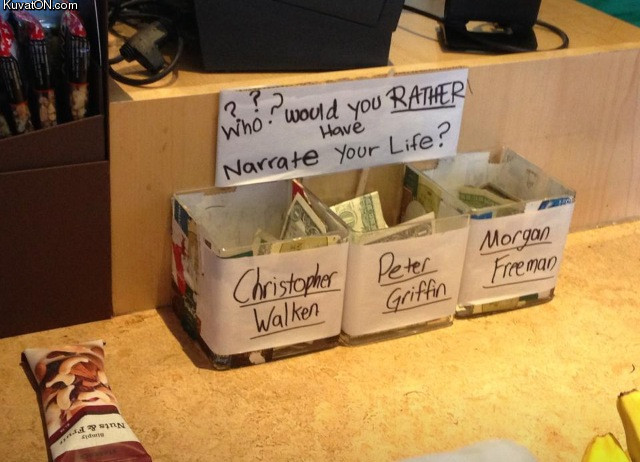 KuvatON.com
? ? ?
Who would you RATHER
Have
Narrate Your Life?
Christopher
Walken
Peter
Griffin
Morgan
Freeman
Simply
Nuts & Fruit